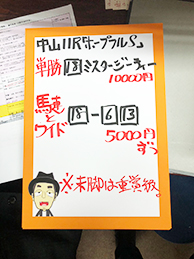 中山11R「ホープフルS」
単勝 18 ミスタージーティー
10000円
馬連とワイド
18-6 13
5000円
ずつ
※末脚は重賞級。